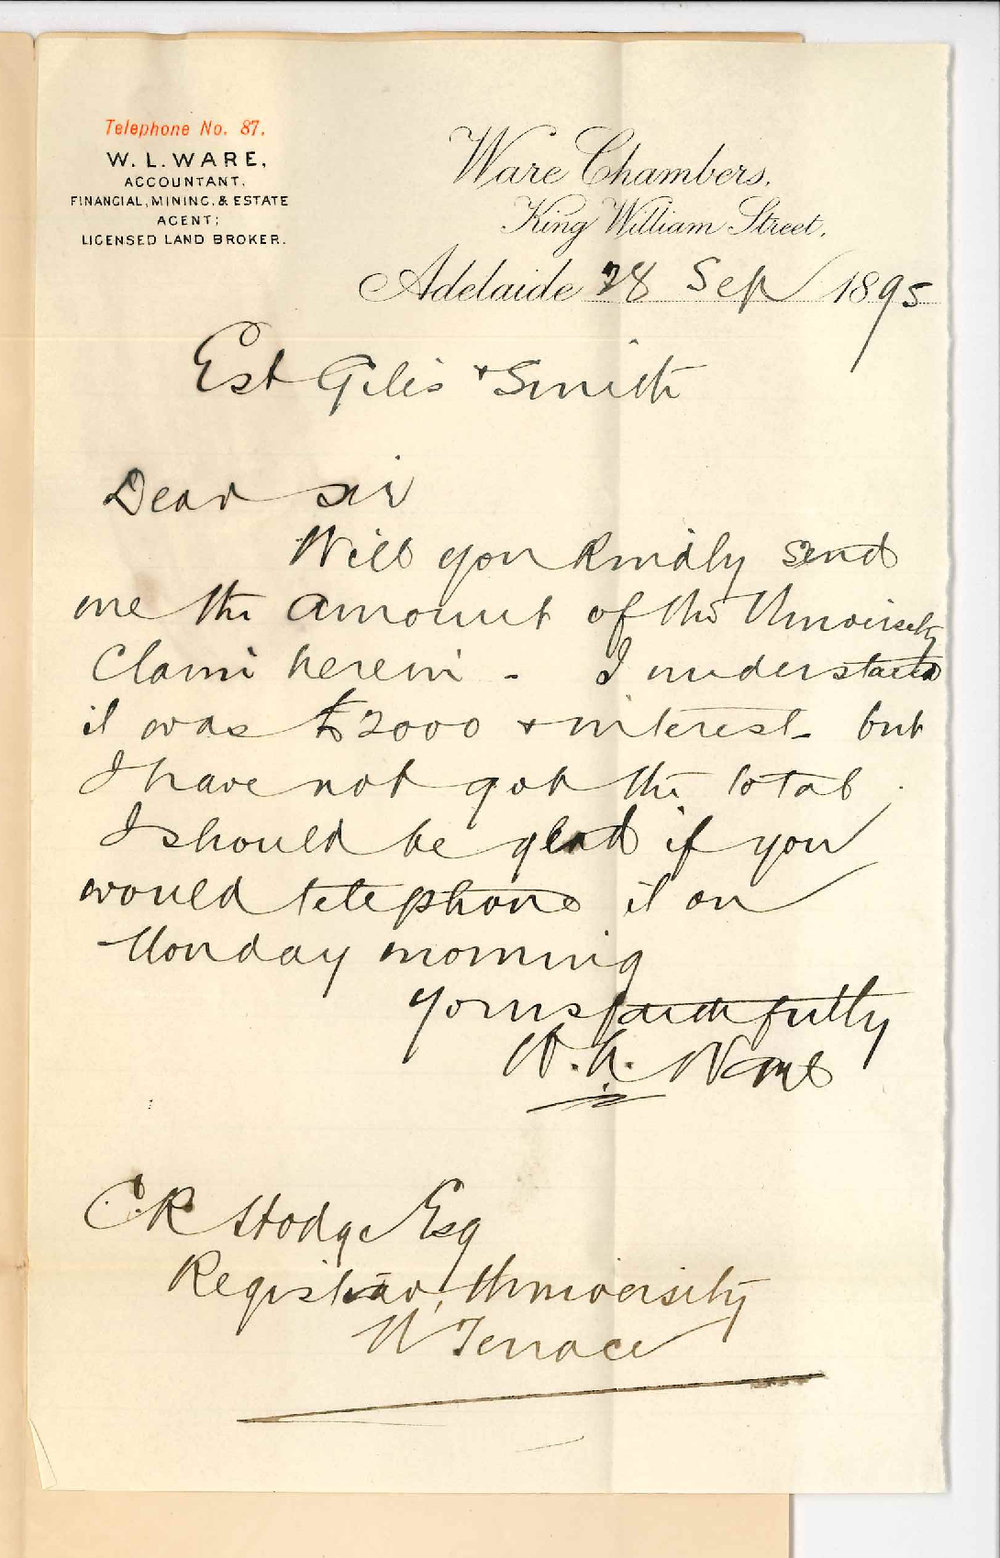 Telephone No. 87.
W. L. WARE,
ACCOUNTANT,
FINANCIAL, MINING, & ESTATE
AGENT;
LICENSED LAND BROKER.
Ware Chambers,
King William Street,
Adelaide 28 Sep 1895
Est Giles & Smith
Dear Sir
Will you kindly send
me the amount of the University
Claim herein - I understand
it was £2000 & interest - but
I have not got the total.
I should be glad if you
would telephone it on
Monday morning
yours faithfully
W. L. Ware
C R Hodge Esq
Registrar, University
N Terrace